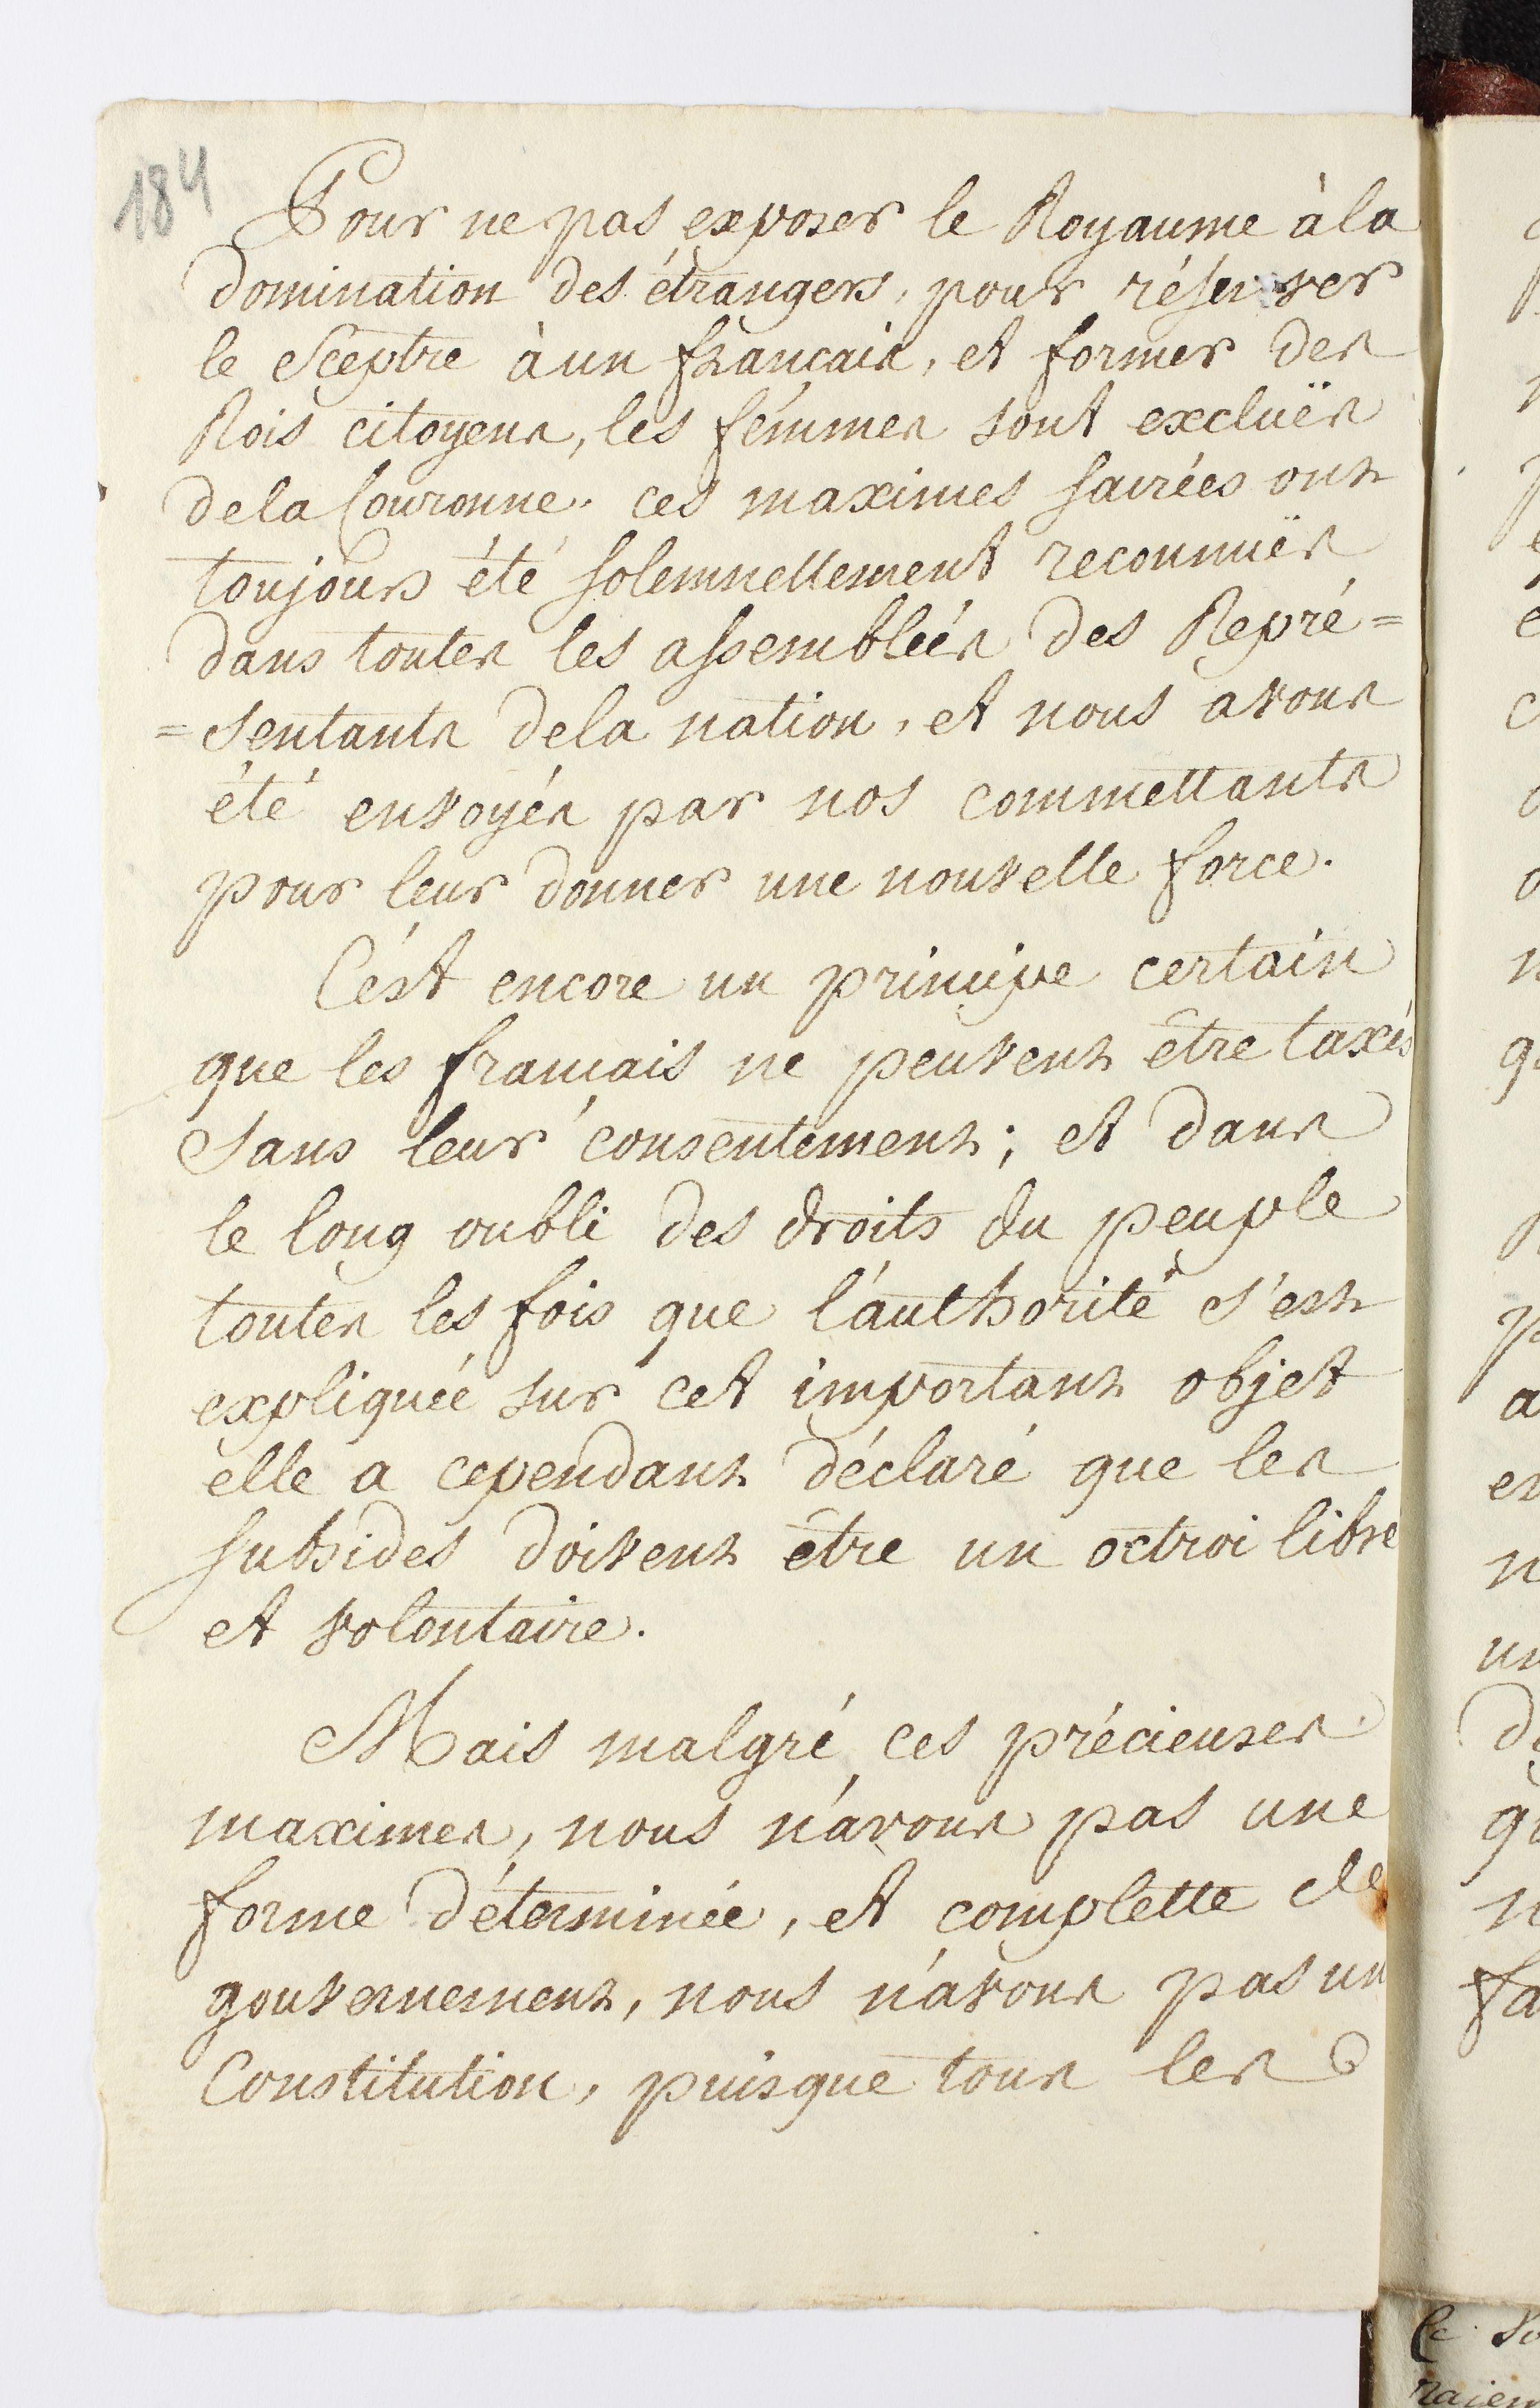 184
Pour ne pas exposer le Royaume à la
domination des étrangers, pour réserver
le Sceptre à un français, et former des
Rois citoyens, les fémmes sont excluës
de la Couronne. ces maximes sacrées ont
toujours été solemnellement reconnuës
dans toutes les assembleés des Repré=
=sentants de la nation, et nous avons
été envoyés par nos commettants
pour leur donner une nouvelle force.
C'est encore un principe certain
que les français ne peuvent être taxés
sans leur consentement; et dans
le long oubli des droits du peuple
toutes les fois que l'authorité s'est
expliquée sur cet important objet
elle a cependant déclaré que les
subsides doivent être un octroi libre
et volontaire.
Mais malgré ces précieuses
maximes, nous n'avons pas une
forme déterminée, et complette de
gouvernement, nous n'avons pas un
Constitution, puisque tous les